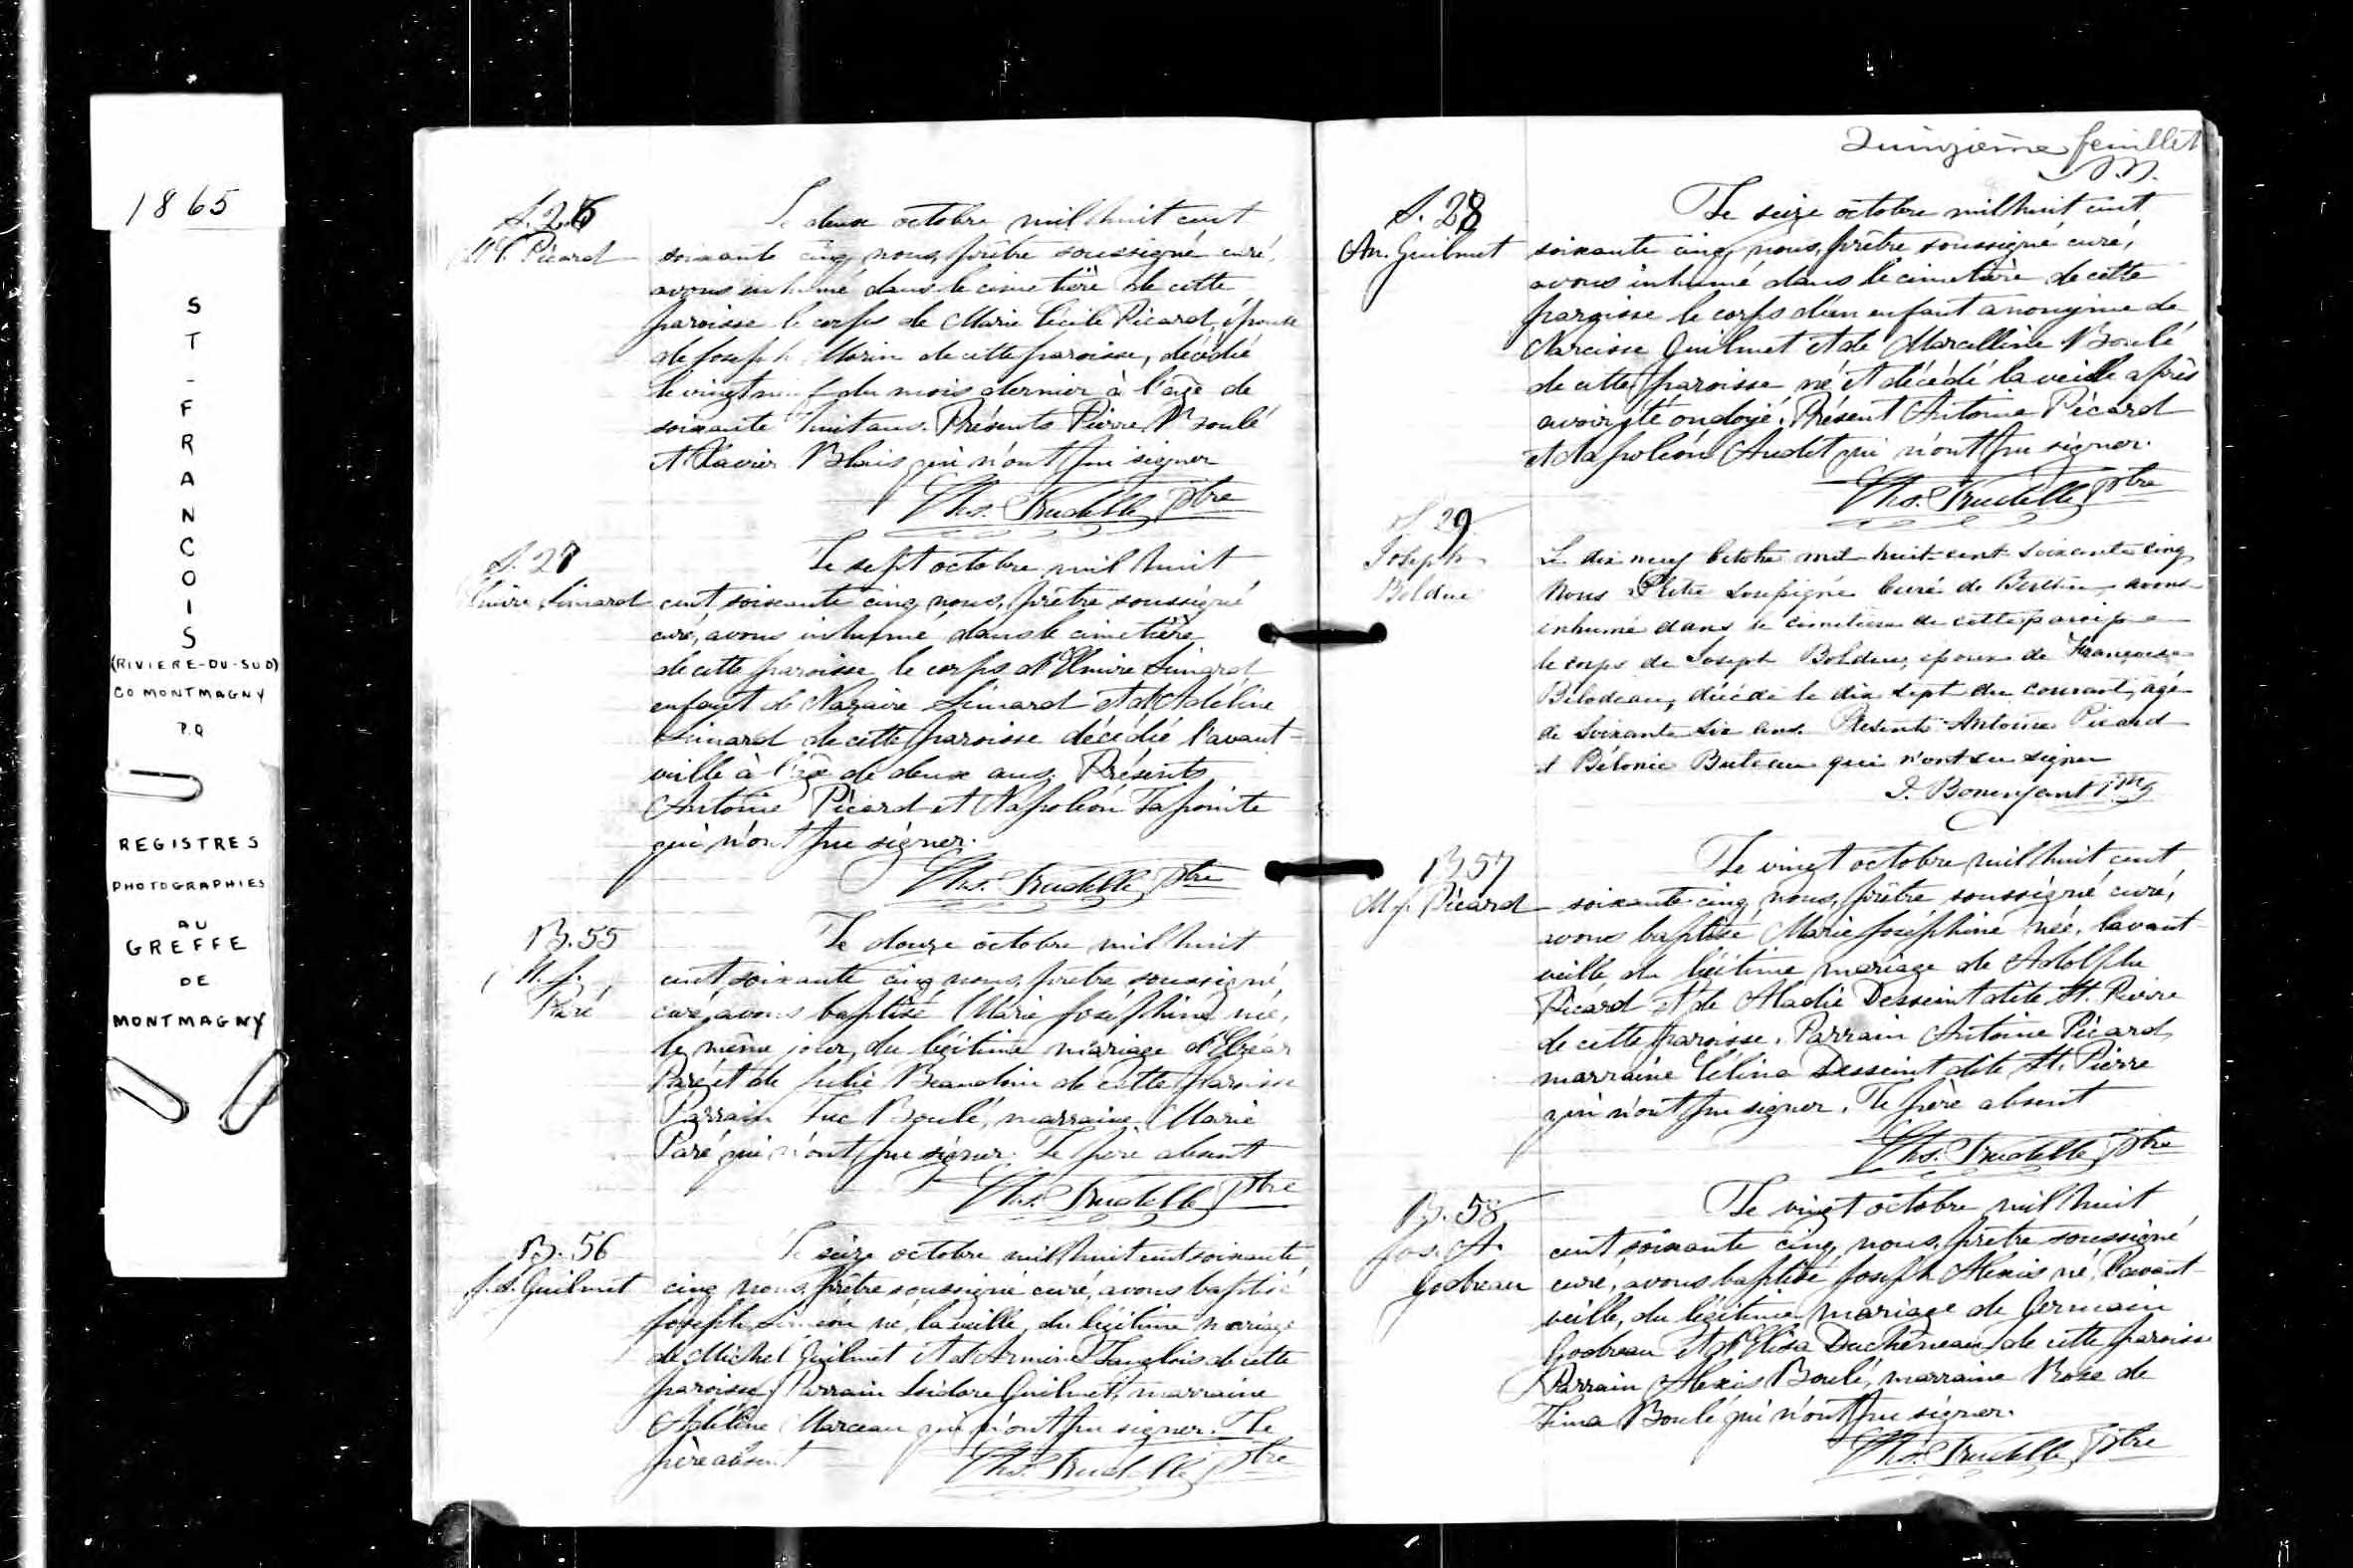 1865
ST-FRANCOIS
(RIVIERE-DU-SUD)
CO MONTMAGNY
P.Q
REGISTRES
PHOTOGRAPHIES
AU
GREFFE
DE
MONTMAGNY
S. 26
Picard
Le deux octobre mil huit cent
soixante cinq nous, prêtre soussigné curé,
avons inhumé dans le cimetière de cette
paroisse le corps de Marie Cécile Picard, épouse
de Joseph Morin de cette paroisse, décédée
le vingt neuf du mois dernier à l'âge de
soixante huit ans. Présents Pierre Boulé
et Xavier Blais qui n'ont pu signer
Ths. Trudelle Ptre
S. 27
Elmire Simard
Le sept octobre mil huit
cent soixante cinq nous, prêtre soussigné
curé, avons inhumé dans le cimetière
de cette paroisse le corps d'Elmire Simard
enfant de Nazaire Simard et d'Adéline
Simard de cette paroisse décédée l'avant-
veille à l'âge de deux ans. Présents
Antoine Picard et Napoléon Lapointe
qui n'ont pu signer.
Ths. Trudelle Ptre
B. 55
M. J.
Paré
Le douze octobre mil huit
cent soixante cinq nous, prêtre soussigné,
curé, avons baptisé Marie Joséphine née,
le même jour, du légitime mariage d'Elzéar
Paré et de Julie Beaudoin de cette paroisse
Parrain Luc Boulé, marraine Marie
Paré qui n'ont pu signer. Le père absent
Ths. Trudelle Ptre
B. 56
J. S. Guilmet
Le seize octobre mil huit cent soixante
cinq nous, prêtre soussigné curé, avons baptisé
Joseph Siméon né, la veille, du légitime mariage
de Michel Guilmet et d'Armine Langlois de cette
paroisse, Parrain Isidore Guilmet, marraine
Adéline Marceau qui n'ont pu signer. Le
père absent
Ths. Trudelle Ptre
Quinzième feuillet
S. 28
An. Guilmet
Le seize octobre mil huit cent
soixante cinq, nous, prêtre soussigné curé,
avons inhumé dans le cimetière de cette
paroisse le corps d'un enfant anonyme de
Narcisse Guilmet et de Marcelline Boulé
de cette paroisse né et décédé la veille après
avoir été ondoyé. Présent Antoine Picard
et Napoléon Audet qui n'ont pu signer.
Ths. Trudelle Ptre
S 29
Joseph
Bolduc
Le dix neuf Octobre mil huit cent soixante cinq
Nous Prêtre soussigné Curé de Berthier avons
inhumé dans le cimetière de cette paroisse
le corps de Joseph Bolduc, époux de Françoise
Bilodeau, décédé le dix sept du courant, âgé
de soixante six ans. Présents Antoine Picard
et Bélonie Buteau qui n'ont su signer
J. Bonenfant Ptre
B 57
M. J. Picard
Le vingt octobre mil huit cent
soixante-cinq nous, prêtre soussigné curé,
avons baptisé Marie Joséphine née, l'avant-
veille du légitime mariage de Adolphe
Picard et de Aladie Desseint dite St. Pierre
de cette paroisse. Parrain Antoine Picard,
marraine Célina Desseint dite St. Pierre
qui n'ont pu signer. Le père absent
Ths. Trudelle Ptre
B. 58
Jos. A.
Godreau
Le vingt octobre mil huit
cent soixante cinq, nous, prêtre soussigné
curé, avons baptisé Joseph Alexis né, l'avant-
veille, du légitime mariage de Germain
Godreau et d'Elisa Duchéneau de cette paroisse
Parrain Alexis Boulé, marraine Rose de
Lima Boulé qui n'ont pu signer.
Ths. Trudelle Ptre